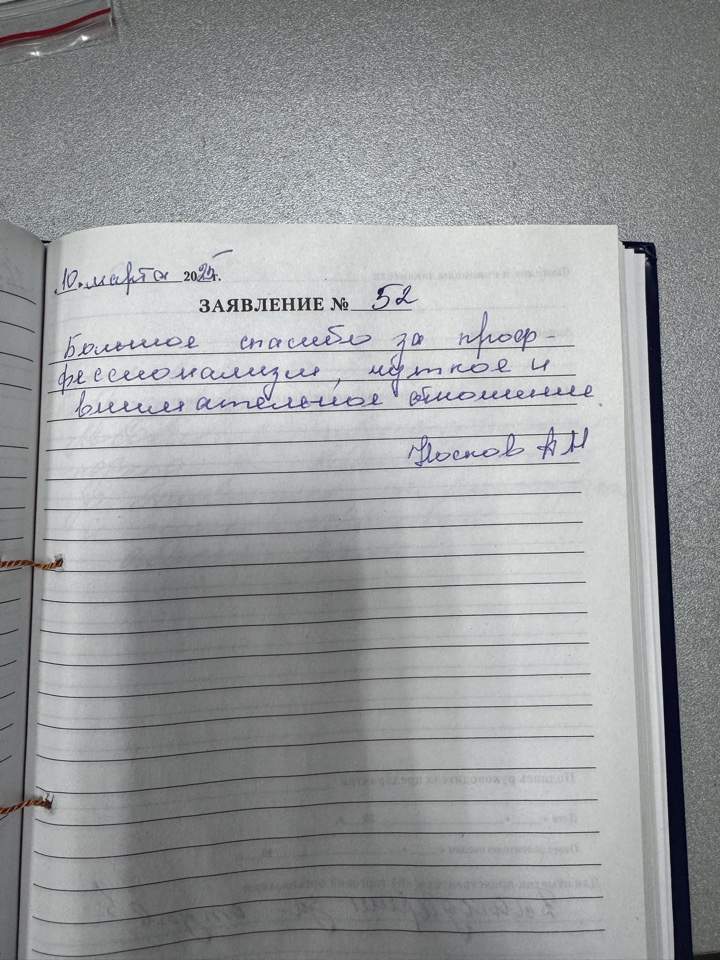 10. марта 2025г.
ЗАЯВЛЕНИЕ № 52
Большое спасибо за проф-
фессионализм, чуткое и
внимательное отношение.
Носков АН